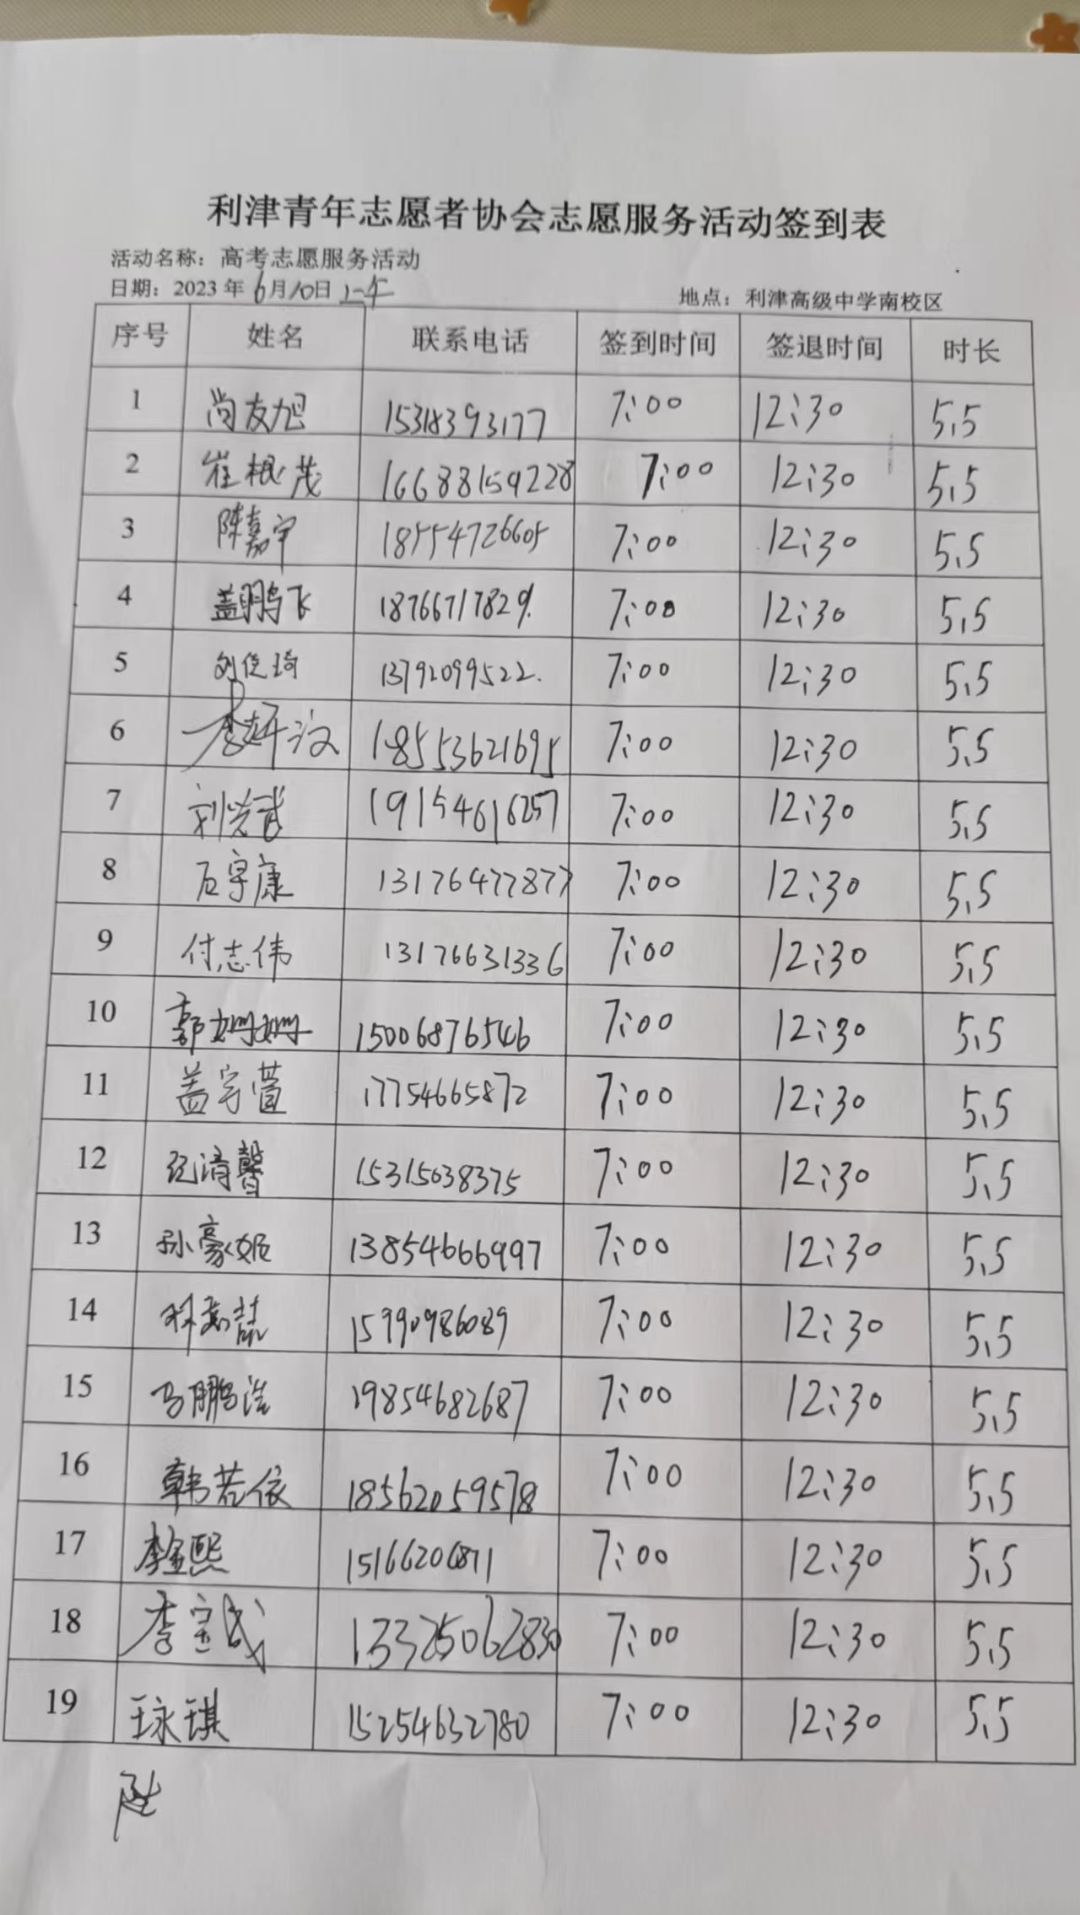 利津青年志愿者协会志愿服务活动签到表
活动名称：高考志愿服务活动
日期：2023 年 6月10日 上午 地点：利津高级中学南校区
序号 姓名 联系电话 签到时间 签退时间 时长
1 尚友旭 15318393177 7:00 12:30 5.5
2 崔根茂 16688159228 7:00 12:30 5.5
3 陈嘉宇 18554726605 7:00 12:30 5.5
4 盖鹏飞 7:00 12:30 5.5
5 刘俊琦 13792099522. 7:00 12:30 5.5
6 李妍汶 18553621695 7:00 12:30 5.5
7 刘 19154616257 7:00 12:30 5.5
8 石宇康 13176477877 7:00 12:30 5.5
9 付志伟 13176631336 7:00 12:30 5.5
10 郭姗姗 15006876546 7:00 12:30 5.5
11 盖宇萱 17754665872 7:00 12:30 5.5
12 纪清馨 15315638375 7:00 12:30 5.5
13 孙豪妮 13854666997 7:00 12:30 5.5
14 15990986089 7:00 12:30 5.5
15 马鹏浩 19854682687 7:00 12:30 5.5
16 韩若依 18562059578 7:00 12:30 5.5
17 李金熙 7:00 12:30 5.5
18 李宝成 13325062830 7:00 12:30 5.5
19 王永琪 15254632780 7:00 12:30 5.5